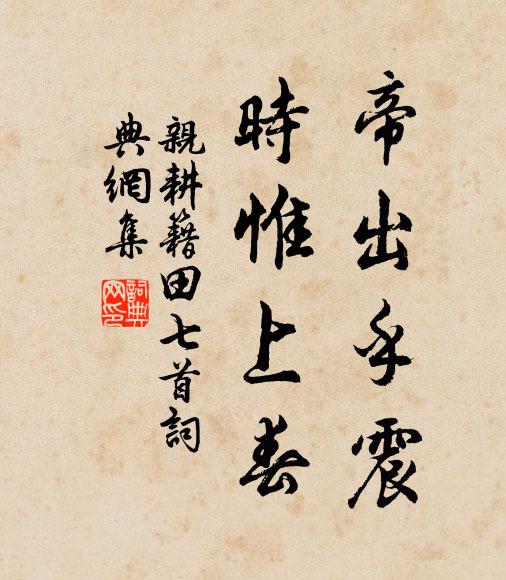 帝出乎震
時惟上春
親耕籍田七首詞
典網集
詞典
网印